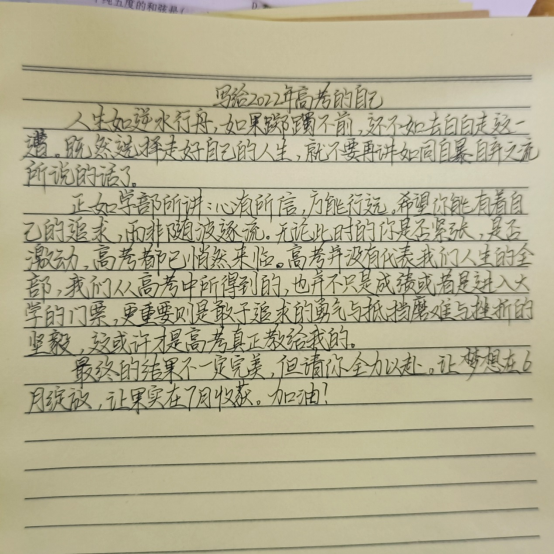 写给2022年高考的自己
人生如逆水行舟，如果踯躅不前，还不如去白白走这一
遭。既然选择走好自己的人生，就不要再讲如同自暴自弃之流
所说的话了。
正如学部所讲：心有所信，方能行远。希望你能有着自
己的追求，而非随波逐流。无论此时的你是否紧张，是否
激动，高考都已悄然来临。高考并没有代表我们人生的全
部，我们从高考中所得到的，也并不只是成绩或者是进入大
学的门票，更重要则是敢于追求的勇气与抵挡磨难与挫折的
坚毅，这或许才是高考真正教给我的。
最终的结果不一定完美，但请你全力以赴。让梦想在6
月绽放，让果实在7月收获。加油！